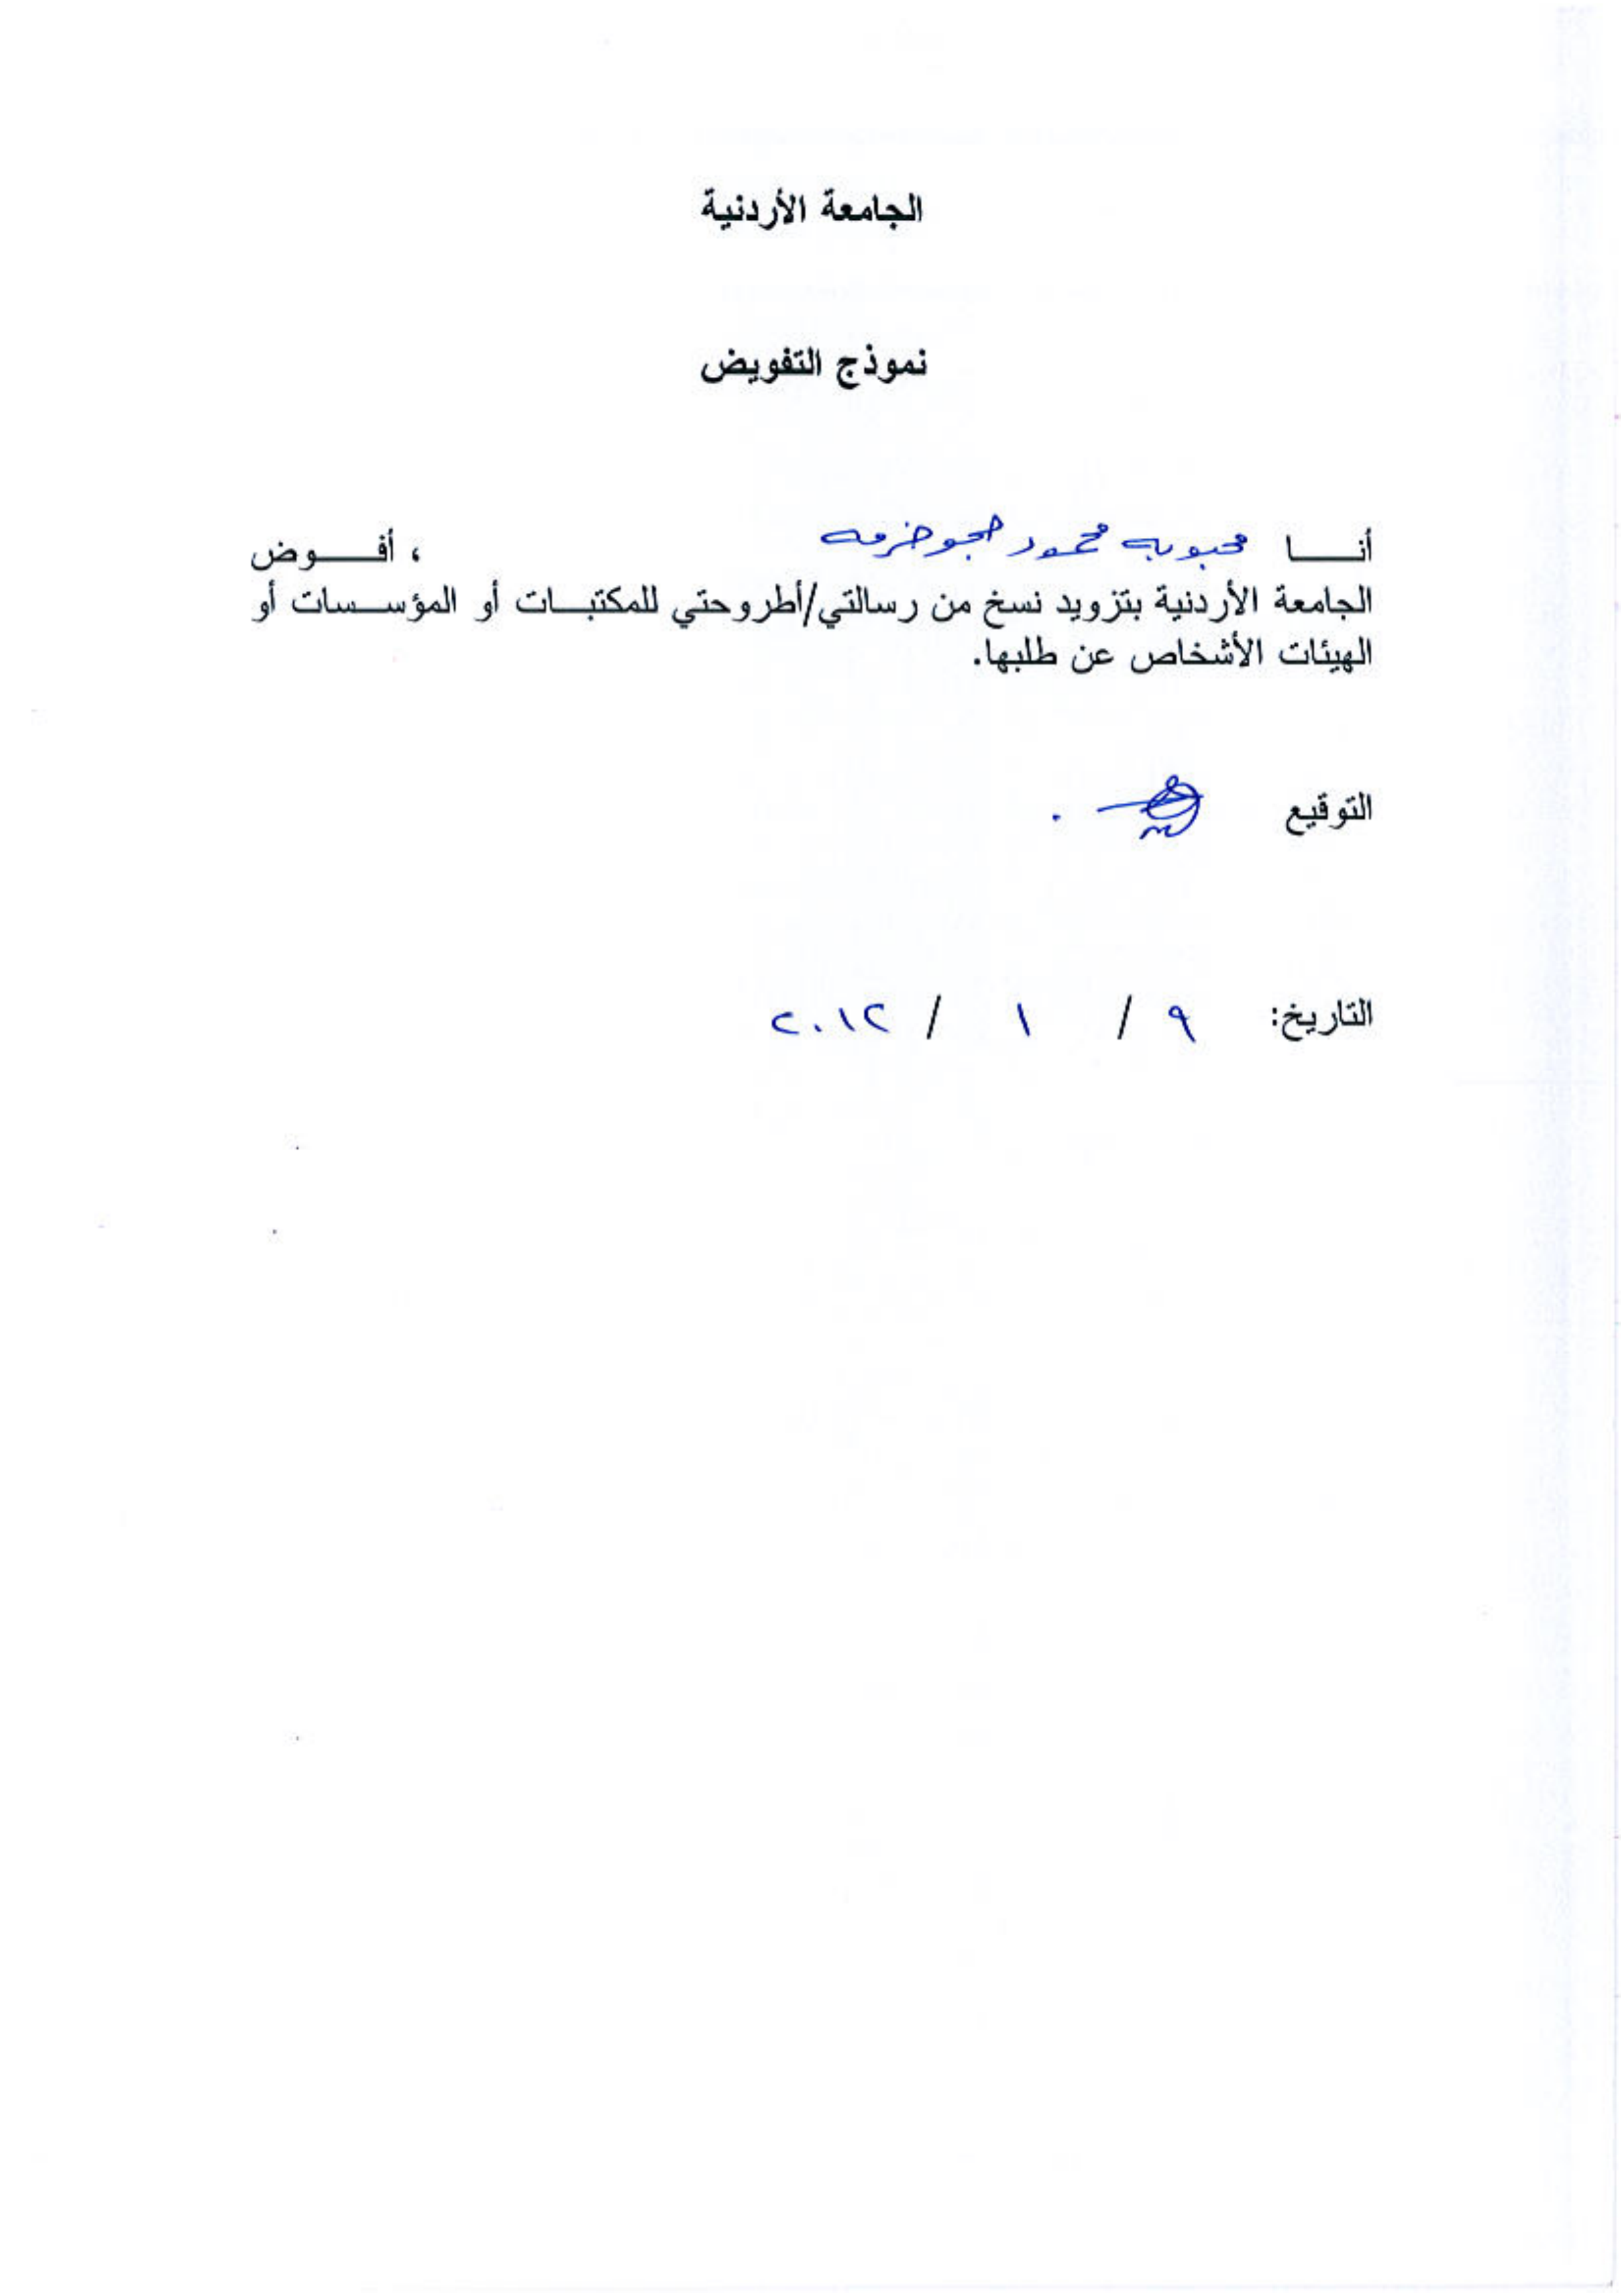 الجامعة الأردنية
نموذج التفويض
أنــا محبوبه محمود ، أفــوض
الجامعة الأردنية بتزويد نسخ من رسالتي/أطروحتي للمكتبــات أو المؤســسات أو
الهيئات الأشخاص عن طلبها.
التوقيع
التاريخ: ٩ / ١ / ٢٠١٢